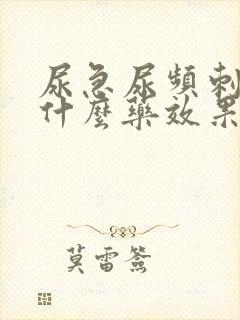 尿急尿頻刺
什麼藥效果
莫雷簽